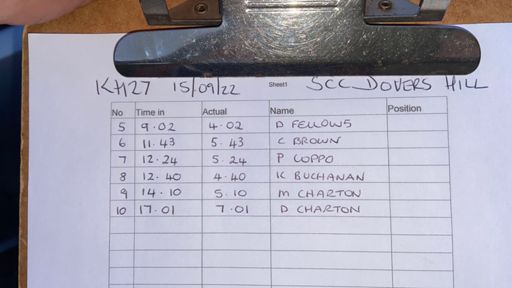 KH27 15/09/22 Sheet1 SCC DOVERS HILL
No Time in Actual Name Position
5 9.02 4.02 D FELLOWS
6 11.43 5.43 C BROWN
7 12.24 5.24 P COPPO
8 12.40 4.40 K BUCHANAN
9 14.10 5.10 M CHARTON
10 17.01 7.01 D CHARTON